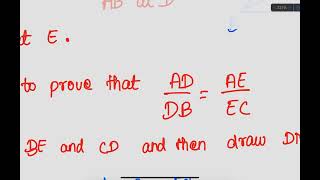 AB at D
at E.
to prove that AD/DB = AE/EC
BE and CD and then draw